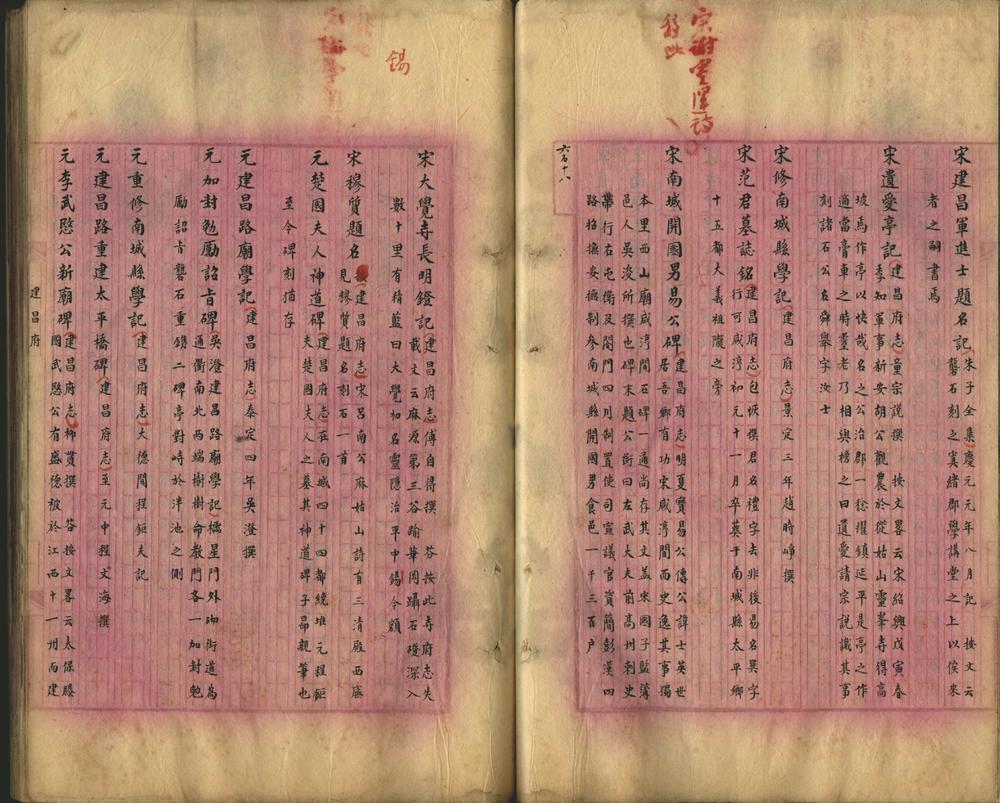 宋謝𤫊運詩
移此
宋建昌軍進士題名記朱子全集慶元元年八月記　按文云
礱石刻之寘諸郡學講堂之上以俟來
者之嗣書焉
宋遺愛亭記建昌府志童宗說撰　按文畧云宋紹興戊寅春
季知軍事新安胡公觀農於從姑山靈峯寺得高
坡焉作亭以快哉名之公治郡一稔擢鎮延平是亭之作
適當膏車之時耋老乃相與榜之曰遺愛請宗說識其事
刻諸石公名舜舉字汝士
宋修南城縣學記建昌府志景定三年趙時㬇撰
宋范君墓誌銘建昌府志包恢撰君名禮字去非後易名巽字
行可咸淳初元十一月卒葬于南城縣太平鄉
十五都大義祖隴之旁
宋南城開國男易公碑建昌府志明夏寶易公傳公諱士英世
居吾鄉有功宋咸淳間而史逸其事獨
本里西山廟咸淳間石碑一通尚存其文盖宋國子監簿
邑人吳浚所撰也碑末題公銜曰左武大夫前高州刺史
帶行右屯衛及閤門四川制置使司宣議官資簡彭漢四
路招撫安撫制參南城縣開國男食邑一千三百戶
六百十八
錫
宋大覺寺長明鐙記建昌府志傅自得撰　芬按此寺府志失
載文云麻源第三谷踰華岡躡石磴深入
數十里有精藍曰大覺初名靈隱治平中錫今額
宋穆質題名建昌府志宋呂南公麻姑山詩有三清殿西廡
見穆質題名刻石一首
元楚國夫人神道碑建昌府志在南城四十四都繞堆元程鉅
夫楚國夫人之墓其神道碑子昂親筆也
至今碑刻猶存
元建昌路廟學記建昌府志泰定四年吳澄撰
元加封勉勵詔旨碑吳澄建昌路廟學記櫺星門外砌街道為
通衢南北兩端樹樹命教門各一加封勉
勵詔旨礱石重鐫二碑亭對峙於泮池之側
元重修南城縣學記建昌府志大德間程鉅夫記
元建昌路重建太平橋碑建昌府志至元中程文海撰
元李武愍公新廟碑建昌府志柳貫撰　芬按文畧云太保滕
國武愍公有盛德被於江西十一州而建
建昌府